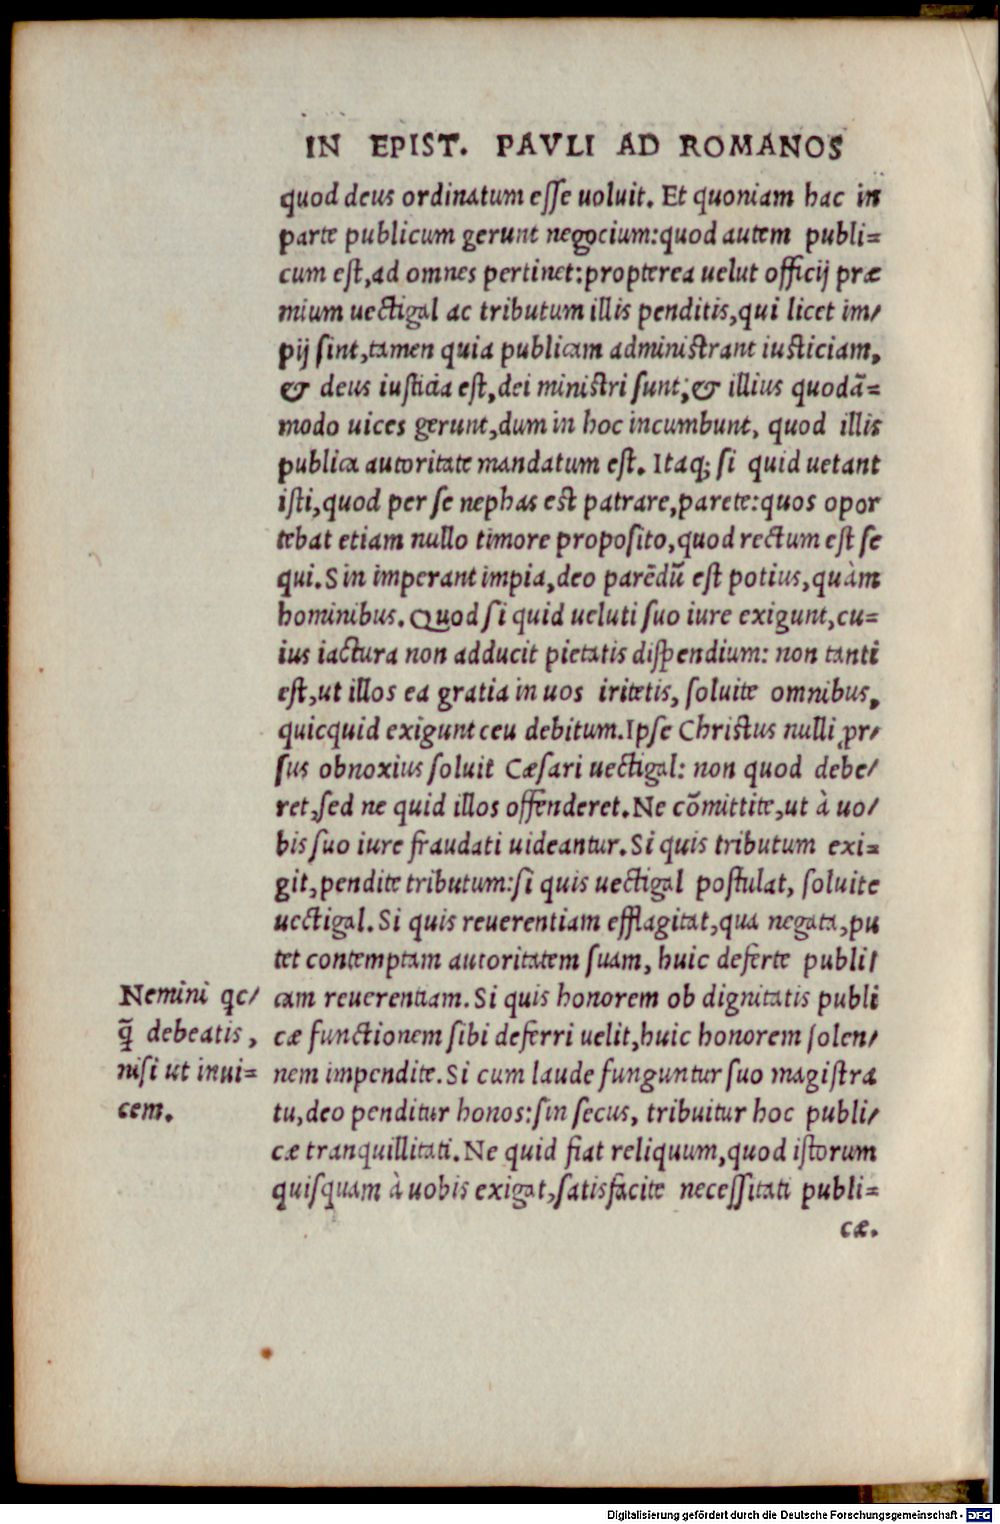 IN EPIST. PAVLI AD ROMANOS
quod deus ordinatum esse uoluit. Et quoniam hac in
parte publicum gerunt negocium:quod autem publi=
cum est,ad omnes pertinet:propterea uelut officij præ
mium uectigal ac tributum illis penditis,qui licet im/
pij sint,tamen quia publicam administrant iusticiam,
& deus iusticia est,dei ministri sunt;& illius quodā=
modo uices gerunt,dum in hoc incumbunt, quod illis
publica autoritate mandatum est. Itaq; si quid uetant
isti,quod per se nephas est patrare,parete:quos opor
tebat etiam nullo timore proposito,quod rectum est se
qui. Sin imperant impia,deo parēdū est potius,quàm
hominibus. Quod si quid ueluti suo iure exigunt,cu=
ius iactura non adducit pietatis dispendium: non tanti
est,ut illos ea gratia in uos iritetis, soluite omnibus,
quicquid exigunt ceu debitum. Ipse Christus nulli ꝓr/
sus obnoxius soluit Cæsari uectigal: non quod debe/
ret,sed ne quid illos offenderet. Ne cōmittite,ut à uo/
bis suo iure fraudati uideantur. Si quis tributum exi=
git,pendite tributum:si quis uectigal postulat, soluite
uectigal. Si quis reuerentiam efflagitat,qua negata,pu
tet contemptam autoritatem suam, huic deferte publi/
cam reuerentiam. Si quis honorem ob dignitatis publi
cæ functionem sibi deferri uelit,huic honorem solen/
nem impendite. Si cum laude funguntur suo magistra
tu,deo penditur honos:sin secus, tribuitur hoc publi/
cæ tranquillitati. Ne quid fiat reliquum,quod istorum
quisquam à uobis exigat,satisfacite necessitati publi=
cæ.
Nemini qc/
q̄ debeatis,
nisi ut inui=
cem.
Digitalisierung gefördert durch die Deutsche Forschungsgemeinschaft - DFG